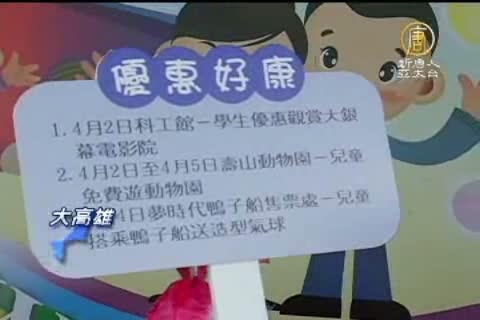 唐
新唐人
亞太台
優惠好康
1.4月2日科工館－學生優惠觀賞大銀
幕電影院
2.4月2日至4月5日壽山動物園－兒童
免費遊動物園
大高雄
4日夢時代鴨子船售票處－兒童
搭乘鴨子船送造型氣球